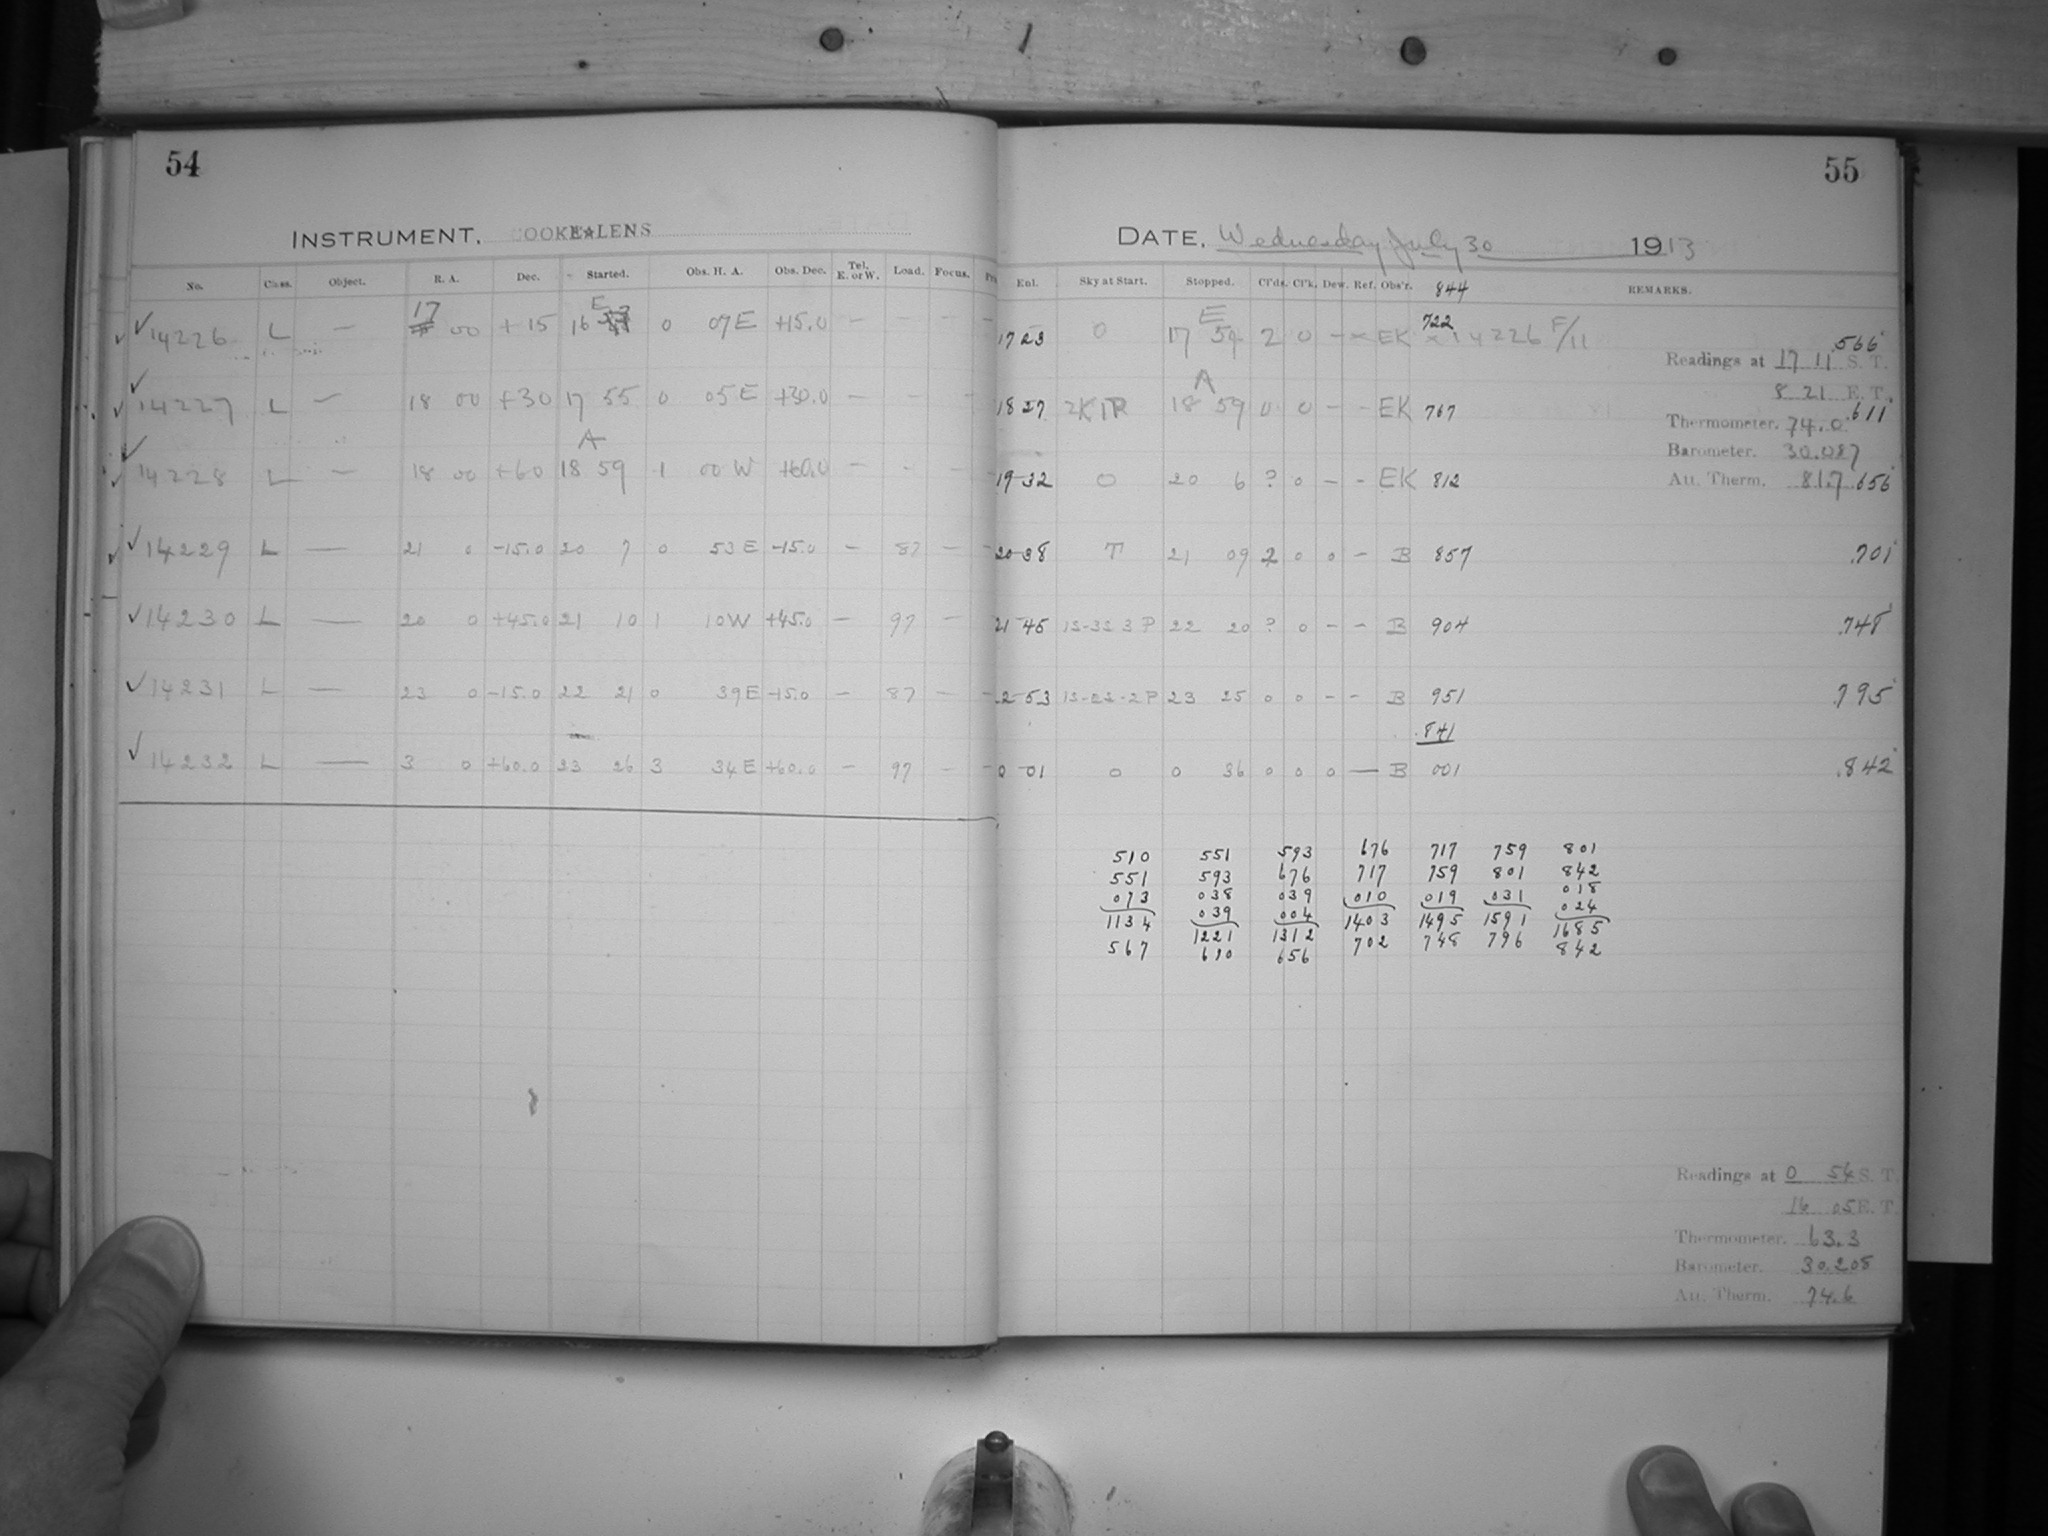 54
INSTRUMENT, COOKE LENS
No. Class. Object. R. A. Dec. Started. Obs. H. A. Obs. Dec. Tel. E. or W. Load. Focus.
17 E
14226 L — 00 +15 16 0 07 E +15.0 — — — —
14227 L — 18 00 +30 17 55 0 05 E +30.0 — — —
A
14228 L — 18 00 +60 18 59 1 00 W +60.0 — - - —
14229 L — 21 0 -15.0 20 7 0 53 E -15.0 — 87 — —
14230 L — 20 0 +45.0 21 10 1 10 W +45.0 — 97 —
14231 L — 23 0 -15.0 22 21 0 39 E -15.0 — 87 — —
14232 L — 3 0 +60.0 23 26 3 34 E +60.0 — 97 — —
55
DATE, Wednesday July 30 1913
Enl. Sky at Start. Stopped. Cl'ds. Cl'k. Dew. Ref. Obs'r. 844 REMARKS.
E 722
17 23 0 17 54 2 0 — × EK × 14226 F/11 .566
Readings at 17 11 S. T.
8 21 E. T.
A
18 27 2K1R 18 59 0 0 - - EK 767 .611
Thermometer. 74.0
Barometer. 30.087
19-32 0 20 6 ? 0 - - EK 812 .656
Att. Therm. 81.7
20-38 T 21 09 2 0 0 - B 857 .701
21-45 1S-3S 3P 22 20 ? 0 - - B 904 .748
2-53 1S-2S-2P 23 25 0 0 - - B 951 .795
.841
0 01 0 0 36 0 0 0 — B 001 .842
510 551 593 676 717 759 801
551 593 676 717 759 801 842
073 038 039 010 019 031 018
039 004 024
1134 1221 1312 1403 1495 1591 1685
567 610 656 702 748 796 842
Readings at 0 54 S. T.
16 05 E. T.
Thermometer. 63.3
Barometer. 30.208
Att. Therm. 74.6